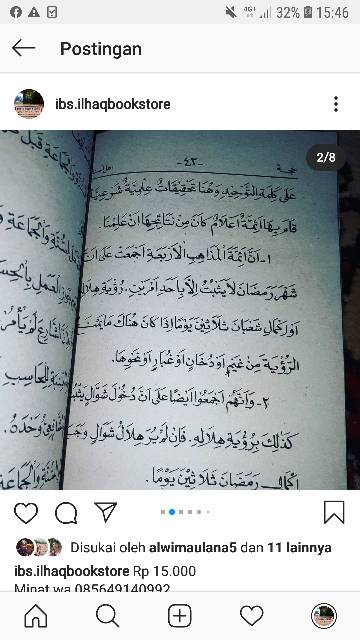 4G+ 32% 15:46
Postingan
ibs.ilhaqbookstore
2/8
-٤٣-
على كلمة التوحيد وهنا تحقيقات علمية شرعية
قام بها أئمة أعلام كان من نتائجها أن علمنا.
١- أن أئمة المذاهب الأربعة أجمعت على أن
شهر رمضان لا يثبت إلا بأحد أمرين. رؤية هلال
أو إكمال شعبان ثلاثين يوما إذا كان هناك ما يمنع
الرؤية من غيم أو دخان أو غبار أو نحوها.
٢- وأنهم أجمعوا أيضا على أن دخول شوال يثبت
كذلك برؤية هلاله. فإن لم ير هلال شوال وجب
إكمال رمضان ثلاثين يوما.
Disukai oleh alwimaulana5 dan 11 lainnya
ibs.ilhaqbookstore Rp 15.000
Minat wa 085649140992